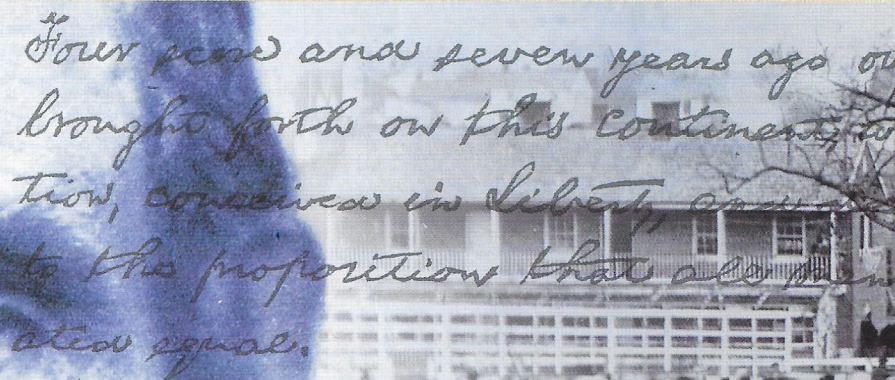 Four score and seven years ago ou
brought forth on this continent, a
tion, conceived in Liberty, and
to the proposition that all men
ated equal.